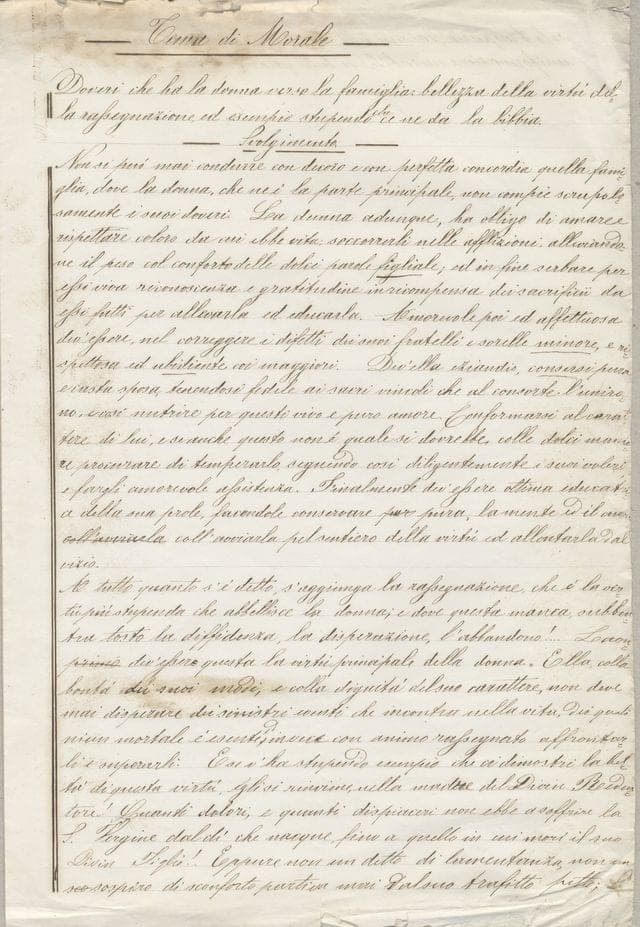 Tema di Morale
Doveri che ha la donna verso la famiglia: bellezza della virtù del-
la rassegnazione ed esempio stupendo che ce ne da la bibbia.
Svolgimento
Non si può mai condurre con decoro e con perfetta concordia quella fami-
glia, dove la donna, che ne è la parte principale, non compie scrupolo
samente i suoi doveri. La donna adunque, ha obligo di amare e
rispettare coloro da cui ebbe vita, soccorrerli nelle afflizioni, alleviando-
ne il peso col conforto delle dolci parole figliale; ed in fine serbare per
essi viva riconoscenza e gratitudine in ricompensa dei sacrificii da
essi fatti per allevarla ed educarla. Amorevole poi ed affettuosa
dev'essere, nel correggere i difetti dei suoi fratelli e sorelle minore, e ri-
spettosa ed ubidiente coi maggiori. Dev'ella eziandio, conservarsi pura
e casta sposa, tenendosi fedele ai sacri vincoli che al consorte l'uniro-
no, e così nutrire per questi vivo e puro amore. Conformarsi al carat-
tere di lui, e se anche questo non è quale si dovrebbe, colle dolci manie-
re procurare di temperarlo, seguendo così diligentemente i suoi voleri
e fargli amorevole assistenza. Finalmente dev'essere ottima educatri-
ce della sua prole, facendole conservare pura, la mente ed il cuore
coll'avviarla pel sentiero della virtù ed allontarla dal
vizio.
A tutto quanto s'è detto, s'aggiunga la rassegnazione, che è la vir-
tù più stupenda che abbellisce la donna; e dove questa manca, subben-
tra tosto la diffidenza, la disperazione, l'abbandono!... Laon-
dev'essere questa la virtù principale della donna. Ella, colla
bontà dei suoi modi, e colla dignità del suo carattere, non deve
mai disperare dei sinistri eventi che incontra nella vita, dei quali
niun mortale è esente, invece con animo rassegnato affrontar-
li e superarli. E se v'ha stupendo esempio che ci dimostri la bel-
tà di questa virtù, egli si rinviene nella madre del Divin Reden-
tore! Quanti dolori, e quanti dispiaceri non ebbe a soffrire la
S. Vergine dal dì che nacque, fino a quello in cui morì il suo
Divin Figlio! Eppure non un detto di lamentanza, non un
sospiro di sconforto partiva mai dal suo trafitto petto;